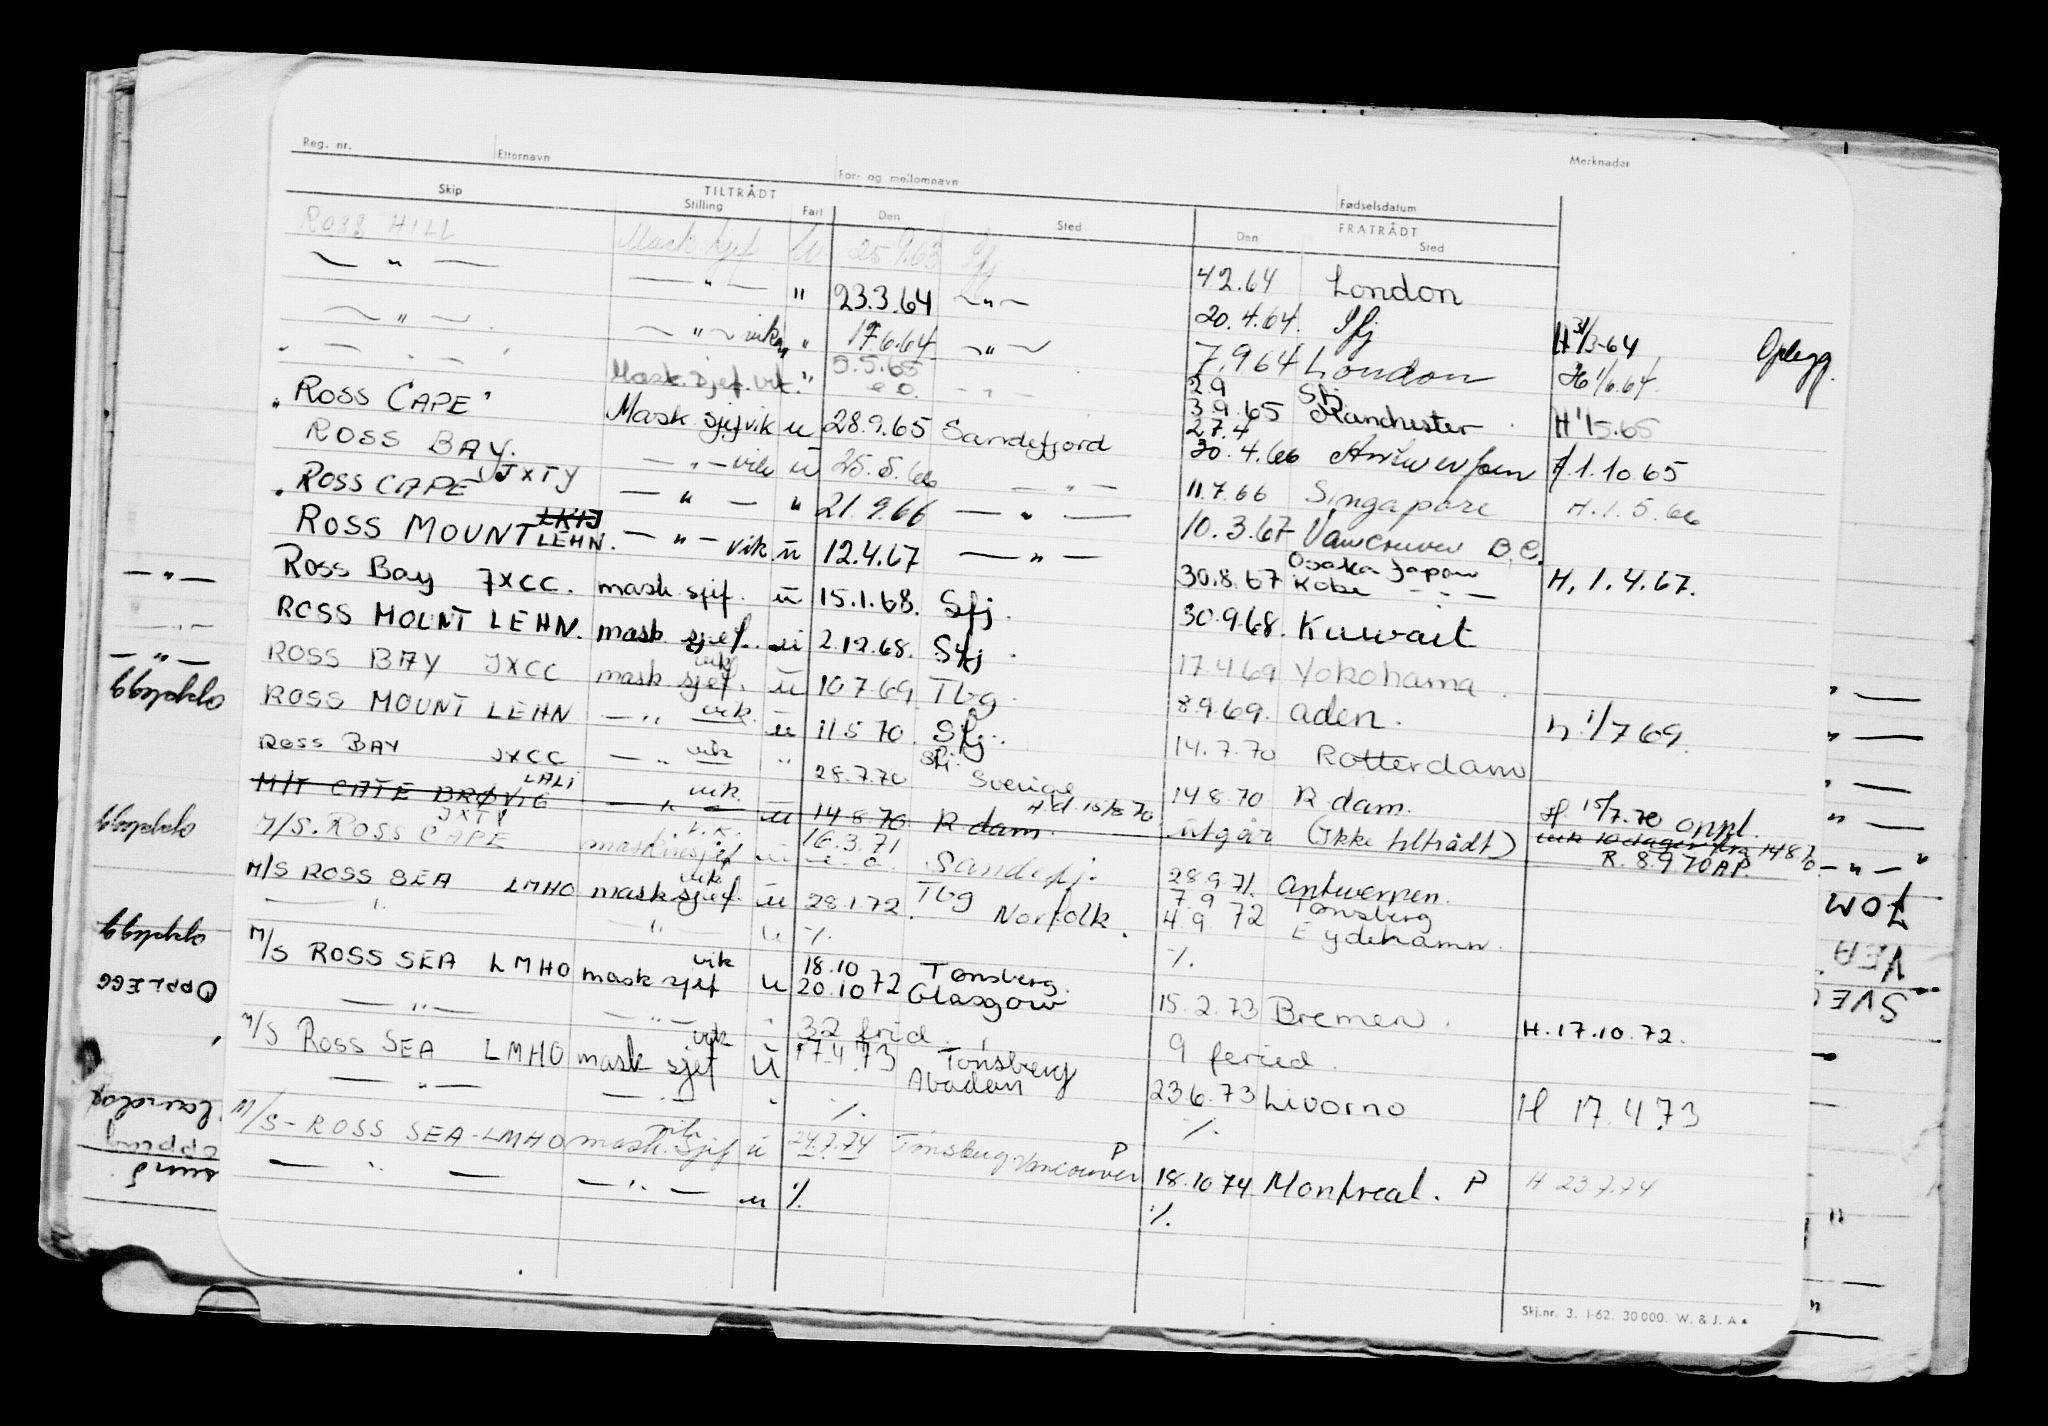 Reg. nr. Etternavn For- og mellomnavn Fødselsdatum Merknader
TILTRÅDT FRATRÅDT
Skip Stilling Fart Den Sted Den Sted
ROSS HILL Mask.sjef u 25.9.63 Sfj 4.2.64 London
— " — — " — " 23.3.64 — " — 20.4.64. Sfj H 31/3-64 Oplegg
— " — — " — vik " 17.6.64 — " — 7.9.64 London H 1/6.64.
— " — Mask.sjef.vik. " 5.5.65 — " — 2.9 Sfj.
3.9.65 Manchester H 1/5.65
" ROSS CAPE " Mask sjef vik u 28.9.65 Sandefjord 27.4
30.4.66 Antwerpen H.1.10.65
ROSS BAY. — " — vik u 25.5.66 — " — 11.7.66 Singapore H.1.5.66
" ROSS CAPE JXTY — " — " 21.9.66 — " — 10.3.67 Vancouver B.C.
ROSS MOUNT LEHN. — " — vik u 12.4.67 — " — 30.8.67 Osaka Japan
Kobe — " — H. 1.4.67.
ROSS BAY JXCC. mask sjef. u 15.1.68. Sfj. 30.9.68. Kuwait
ROSS MOUNT LEHN. mask sjef. u 2.12.68. Sfj. 17.4.69 Yokohama.
ROSS BAY JXCC mask sjef. vik u 10.7.69 Tbg. 8.9.69. Aden. h. 1/7 69.
ROSS MOUNT LEHN — " — vik. u 11.5.70 Sfj. 14.7.70 Rotterdam
ROSS BAY JXCC — " — vik " 28.7.70 Sfj. Sverige 14.8.70 R.dam. H. 15/7.70 oppl.
M/T CATE BRØVIG LALI — " — vik. u 14.8.70 R.dam. utgår (Ikke tiltrådt) 14.8.70
R. 8.9.70 AP.
M/S. ROSS CAPE JXTY maskinsjef vik. u 16.3.71 Sandefj. 28.9.71. Antwerpen.
M/S ROSS SEA LMHO mask sjef. vik u 28.1.72. Tbg Norfolk. 7.9 Tønsberg
4.9.72 Eydehamn.
— " — — " — u %. %.
M/S ROSS SEA LMHO mask sjef vik u 18.10 Tønsberg.
20.10 72 Glasgow 15.2.73 Bremen. H. 17.10.72.
— " — — " — " 32 frid. 9 feried.
M/S ROSS SEA LMHO mask sjef vik u 17.4.73 Tønsberg
Abadan 23.6.73 Livorno H 17.4.73
— " — — " — " %. %.
M/S - ROSS SEA - LMHO mask.sjef vik u 24.7.74 Tønsberg Vancouver P 18.10.74 Montreal. P H 23.7.74
— " — — " — u %. %.
Skj.nr. 3. 1-62. 30000. W. & J. A
Opplegg
Opplegg
Opplegg
OPPLEGG